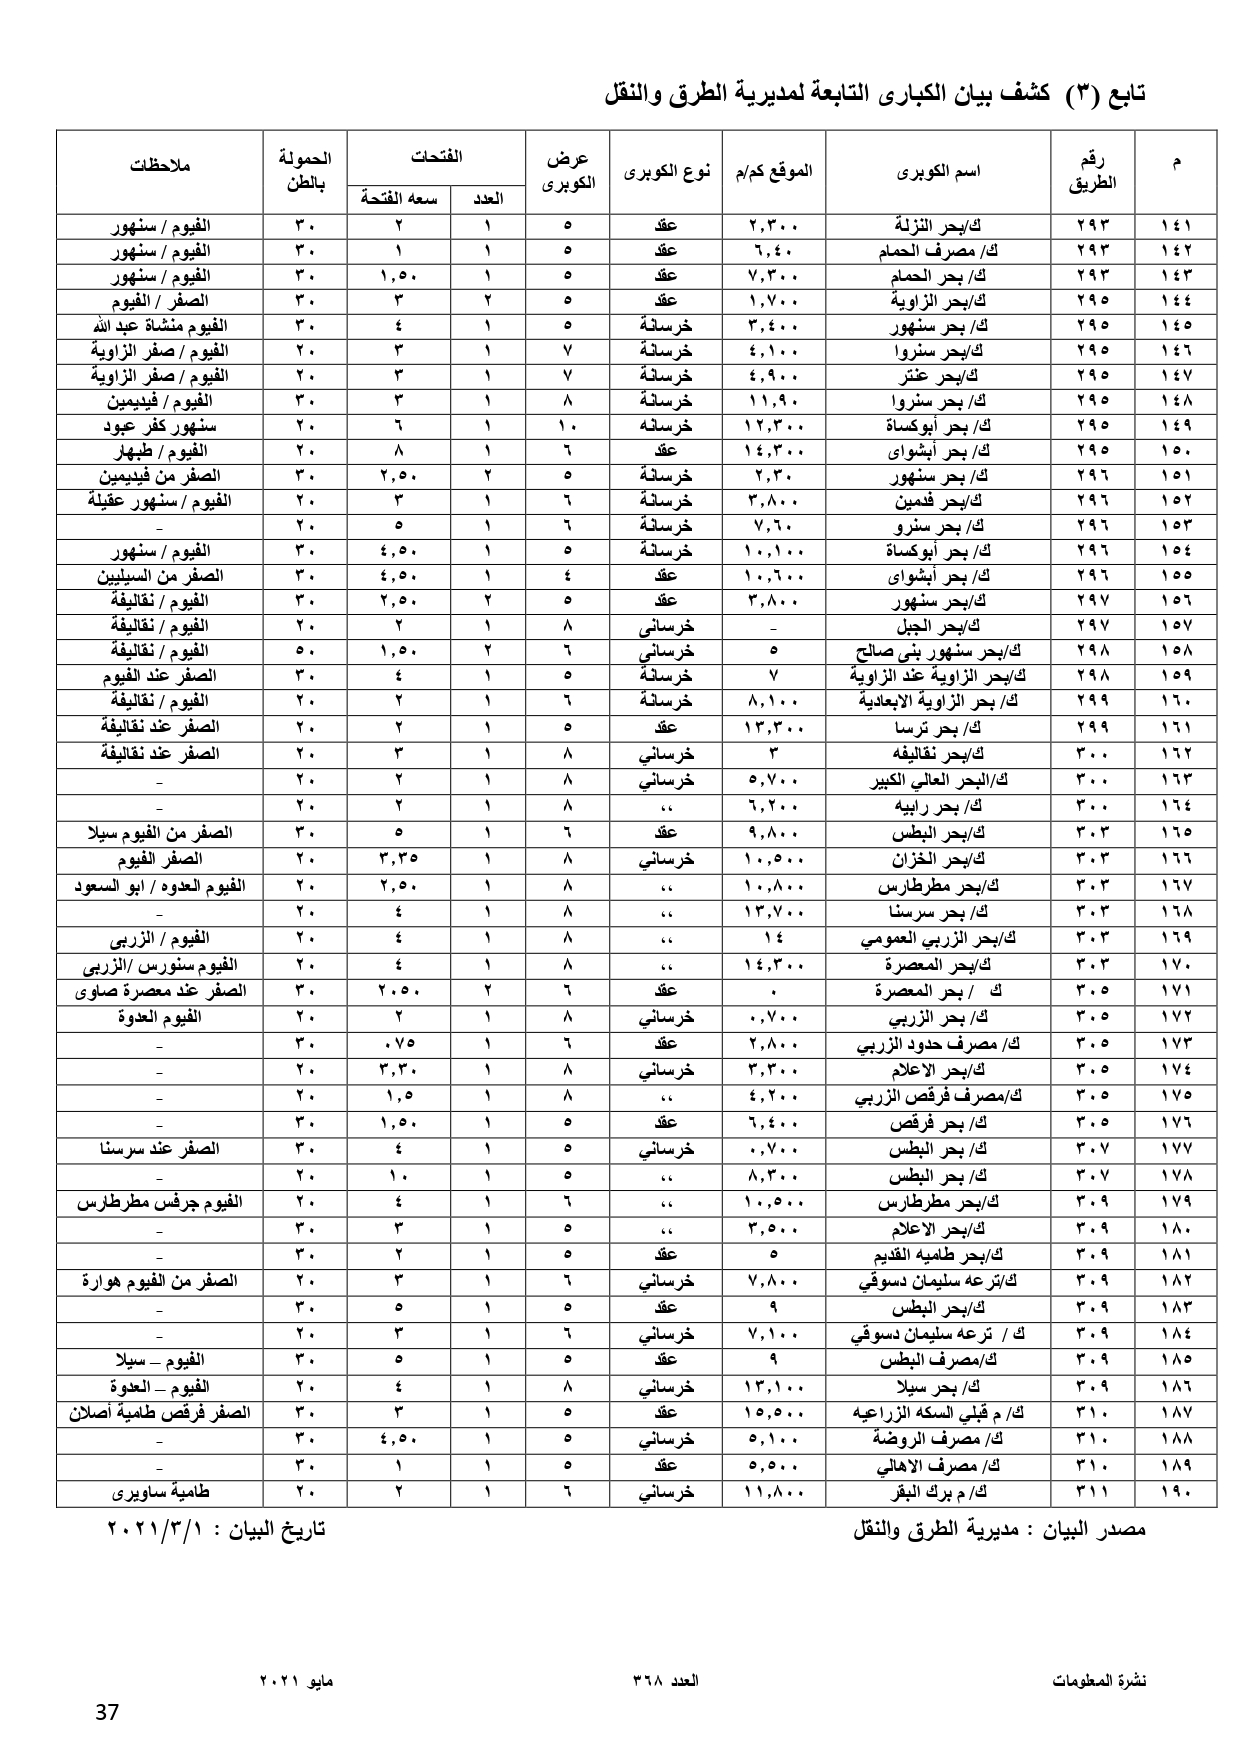 تابع (٣) كشف بيان الكبارى التابعة لمديرية الطرق والنقل
م رقم الطريق اسم الكوبرى الموقع كم/م نوع الكوبرى عرض الكوبرى الفتحات الحمولة بالطن ملاحظات
العدد سعه الفتحة
١٤١ ٢٩٣ ك/بحر النزلة ٢,٣٠٠ عقد ٥ ١ ٢ ٣٠ الفيوم / سنهور
١٤٢ ٢٩٣ ك/ مصرف الحمام ٦,٤٠ عقد ٥ ١ ١ ٣٠ الفيوم / سنهور
١٤٣ ٢٩٣ ك/ بحر الحمام ٧,٣٠٠ عقد ٥ ١ ١,٥٠ ٣٠ الفيوم / سنهور
١٤٤ ٢٩٥ ك/بحر الزاوية ١,٧٠٠ عقد ٥ ٢ ٣ ٣٠ الصفر / الفيوم
١٤٥ ٢٩٥ ك/ بحر سنهور ٣,٤٠٠ خرسانة ٥ ١ ٤ ٣٠ الفيوم منشاة عبد الله
١٤٦ ٢٩٥ ك/بحر سنروا ٤,١٠٠ خرسانة ٧ ١ ٣ ٢٠ الفيوم / صفر الزاوية
١٤٧ ٢٩٥ ك/بحر عنتر ٤,٩٠٠ خرسانة ٧ ١ ٣ ٢٠ الفيوم / صفر الزاوية
١٤٨ ٢٩٥ ك/ بحر سنروا ١١,٩٠ خرسانة ٨ ١ ٣ ٣٠ الفيوم / فيديمين
١٤٩ ٢٩٥ ك/ بحر أبوكساة ١٢,٣٠٠ خرسانه ١٠ ١ ٦ ٢٠ سنهور كفر عبود
١٥٠ ٢٩٥ ك/ بحر أبشواى ١٤,٣٠٠ عقد ٦ ١ ٨ ٢٠ الفيوم / طبهار
١٥١ ٢٩٦ ك/ بحر سنهور ٢,٣٠ خرسانة ٥ ٢ ٢,٥٠ ٣٠ الصفر من فيديمين
١٥٢ ٢٩٦ ك/بحر فدمين ٣,٨٠٠ خرسانة ٦ ١ ٣ ٢٠ الفيوم / سنهور عقيلة
١٥٣ ٢٩٦ ك/ بحر سنرو ٧,٦٠ خرسانة ٦ ١ ٥ ٢٠ -
١٥٤ ٢٩٦ ك/ بحر أبوكساة ١٠,١٠٠ خرسانة ٥ ١ ٤,٥٠ ٣٠ الفيوم / سنهور
١٥٥ ٢٩٦ ك/ بحر أبشواى ١٠,٦٠٠ عقد ٤ ١ ٤,٥٠ ٣٠ الصفر من السيليين
١٥٦ ٢٩٧ ك/بحر سنهور ٣,٨٠٠ عقد ٥ ٢ ٢,٥٠ ٣٠ الفيوم / نقاليفة
١٥٧ ٢٩٧ ك/بحر الجبل - خرسانى ٨ ١ ٢ ٢٠ الفيوم / نقاليفة
١٥٨ ٢٩٨ ك/بحر سنهور بنى صالح ٥ خرساني ٦ ٢ ١,٥٠ ٥٠ الفيوم / نقاليفة
١٥٩ ٢٩٨ ك/بحر الزاوية عند الزاوية ٧ خرسانة ٥ ١ ٤ ٣٠ الصفر عند الفيوم
١٦٠ ٢٩٩ ك/ بحر الزاوية الابعادية ٨,١٠٠ خرسانة ٦ ١ ٢ ٢٠ الفيوم / نقاليفة
١٦١ ٢٩٩ ك/ بحر ترسا ١٣,٣٠٠ عقد ٥ ١ ٢ ٢٠ الصفر عند نقاليفة
١٦٢ ٣٠٠ ك/بحر نقاليفه ٣ خرساني ٨ ١ ٣ ٢٠ الصفر عند نقاليفة
١٦٣ ٣٠٠ ك/البحر العالي الكبير ٥,٧٠٠ خرساني ٨ ١ ٢ ٢٠ -
١٦٤ ٣٠٠ ك/ بحر رابيه ٦,٢٠٠ ،، ٨ ١ ٢ ٢٠ -
١٦٥ ٣٠٣ ك/بحر البطس ٩,٨٠٠ عقد ٦ ١ ٥ ٣٠ الصفر من الفيوم سيلا
١٦٦ ٣٠٣ ك/بحر الخزان ١٠,٥٠٠ خرساني ٨ ١ ٣,٣٥ ٢٠ الصفر الفيوم
١٦٧ ٣٠٣ ك/بحر مطرطارس ١٠,٨٠٠ ،، ٨ ١ ٢,٥٠ ٢٠ الفيوم العدوه / ابو السعود
١٦٨ ٣٠٣ ك/ بحر سرسنا ١٣,٧٠٠ ،، ٨ ١ ٤ ٢٠ -
١٦٩ ٣٠٣ ك/بحر الزربي العمومي ١٤ ،، ٨ ١ ٤ ٢٠ الفيوم / الزربى
١٧٠ ٣٠٣ ك/بحر المعصرة ١٤,٣٠٠ ،، ٨ ١ ٤ ٢٠ الفيوم سنورس /الزربى
١٧١ ٣٠٥ ك / بحر المعصرة ٠ عقد ٦ ٢ ٢٠٥٠ ٣٠ الصفر عند معصرة صاوى
١٧٢ ٣٠٥ ك/ بحر الزربي ٠,٧٠٠ خرساني ٨ ١ ٢ ٢٠ الفيوم العدوة
١٧٣ ٣٠٥ ك/ مصرف حدود الزربي ٢,٨٠٠ عقد ٦ ١ ٠٧٥ ٣٠ -
١٧٤ ٣٠٥ ك/بحر الاعلام ٣,٣٠٠ خرساني ٨ ١ ٣,٣٠ ٢٠ -
١٧٥ ٣٠٥ ك/مصرف فرقص الزربي ٤,٢٠٠ ،، ٨ ١ ١,٥ ٢٠ -
١٧٦ ٣٠٥ ك/ بحر فرقص ٦,٤٠٠ عقد ٥ ١ ١,٥٠ ٣٠ -
١٧٧ ٣٠٧ ك/ بحر البطس ٠,٧٠٠ خرساني ٥ ١ ٤ ٣٠ الصفر عند سرسنا
١٧٨ ٣٠٧ ك/ بحر البطس ٨,٣٠٠ ،، ٥ ١ ١٠ ٢٠ -
١٧٩ ٣٠٩ ك/بحر مطرطارس ١٠,٥٠٠ ،، ٦ ١ ٤ ٢٠ الفيوم جرفس مطرطارس
١٨٠ ٣٠٩ ك/بحر الاعلام ٣,٥٠٠ ،، ٥ ١ ٣ ٣٠ -
١٨١ ٣٠٩ ك/بحر طاميه القديم ٥ عقد ٥ ١ ٢ ٣٠ -
١٨٢ ٣٠٩ ك/ترعه سليمان دسوقي ٧,٨٠٠ خرساني ٦ ١ ٣ ٢٠ الصفر من الفيوم هوارة
١٨٣ ٣٠٩ ك/بحر البطس ٩ عقد ٥ ١ ٥ ٣٠ -
١٨٤ ٣٠٩ ك / ترعه سليمان دسوقي ٧,١٠٠ خرساني ٦ ١ ٣ ٢٠ -
١٨٥ ٣٠٩ ك/مصرف البطس ٩ عقد ٥ ١ ٥ ٣٠ الفيوم – سيلا
١٨٦ ٣٠٩ ك/ بحر سيلا ١٣,١٠٠ خرساني ٨ ١ ٤ ٢٠ الفيوم – العدوة
١٨٧ ٣١٠ ك/ م قبلي السكه الزراعيه ١٥,٥٠٠ عقد ٥ ١ ٣ ٣٠ الصفر فرقص طامية أصلان
١٨٨ ٣١٠ ك/ مصرف الروضة ٥,١٠٠ خرساني ٥ ١ ٤,٥٠ ٣٠ -
١٨٩ ٣١٠ ك/ مصرف الاهالي ٥,٥٠٠ عقد ٥ ١ ١ ٣٠ -
١٩٠ ٣١١ ك/ م برك البقر ١١,٨٠٠ خرساني ٦ ١ ٢ ٢٠ طامية ساويرى
مصدر البيان : مديرية الطرق والنقل تاريخ البيان : ٢٠٢١/٣/١
نشرة المعلومات العدد ٣٦٨ مايو ٢٠٢١
37